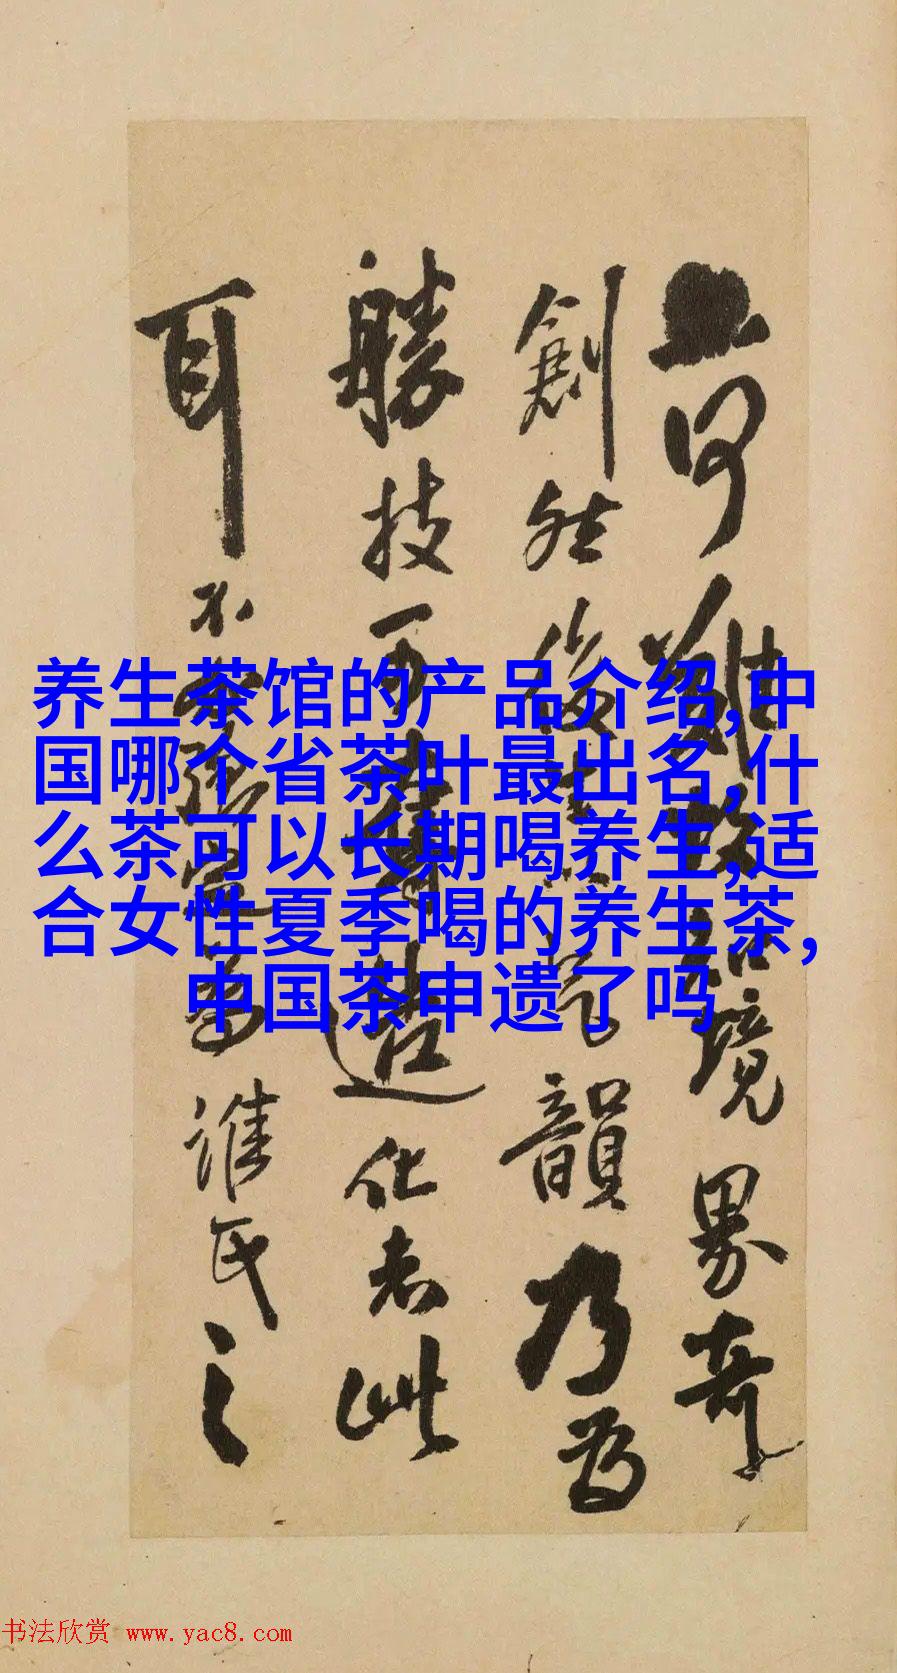 养生茶馆的产品介绍,中
国哪个省茶叶最出名,什
么茶可以长期喝养生,适
合女性夏季喝的养生茶,
中国茶申遗了吗
何難 境界奇
創然後 韻乃為
勝技 造化者此
耳不 誰氏之
书法欣赏 www.yac8.com